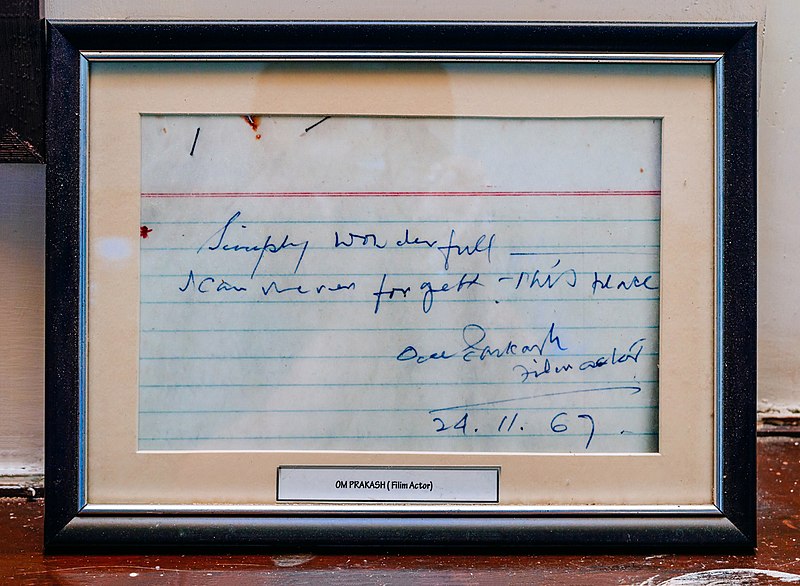 Simply wonderfull
I can never forgett - This place
Om Parkash
Film actor
24. 11. 67.
OM PRAKASH ( Filim Actor)